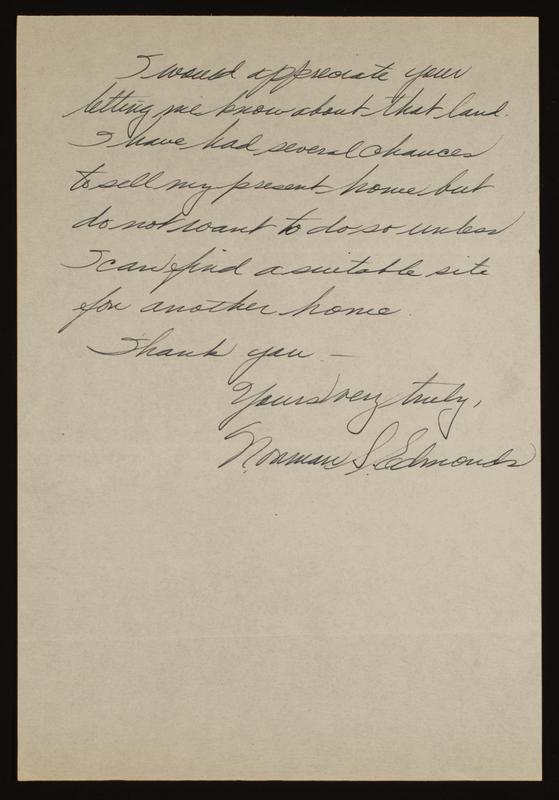 I would appreciate your
letting me know about that land.
I have had several chances
to sell my present home but
do not want to do so unless
I can find a suitable site
for another home.
Thank you –
Yours very truly,
Norman S. Edmonds